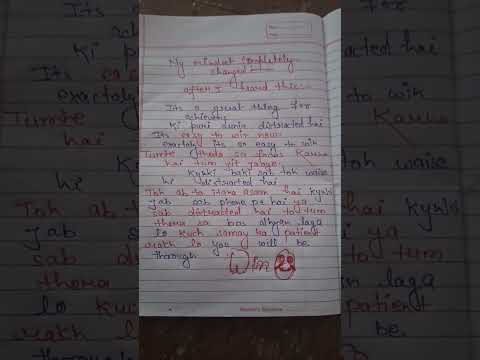 My mindset completely
changed!
after I heard this:-
Its a great thing for
achievers
Ki puri duniya distracted hai
Its easy to win now
exactaly its so easy to win
Tumhe thoda sa focus Karna
hai tum jit jaoge
Kyuki baki sab toh waise
hi distracted hai
Toh ab to Hona asan hai kyuki
Jab sab phone pe hai ya
sab distracted hai to tum
thora sa bas dhyan laga
lo kuch samay ka patient
rakh lo you will be
through
Win